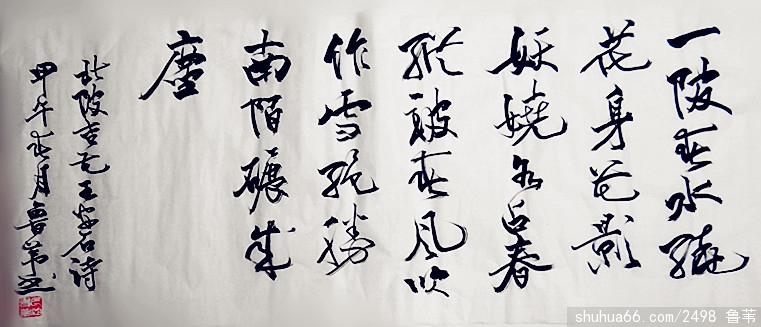 一陂春水繞
花身花影
妖嬈各占春
縱被春风吹
作雪絕勝
南陌碾成
塵
北陂杏花王安石诗
甲午春月鲁苇书
shuhua66.com/2498 鲁苇